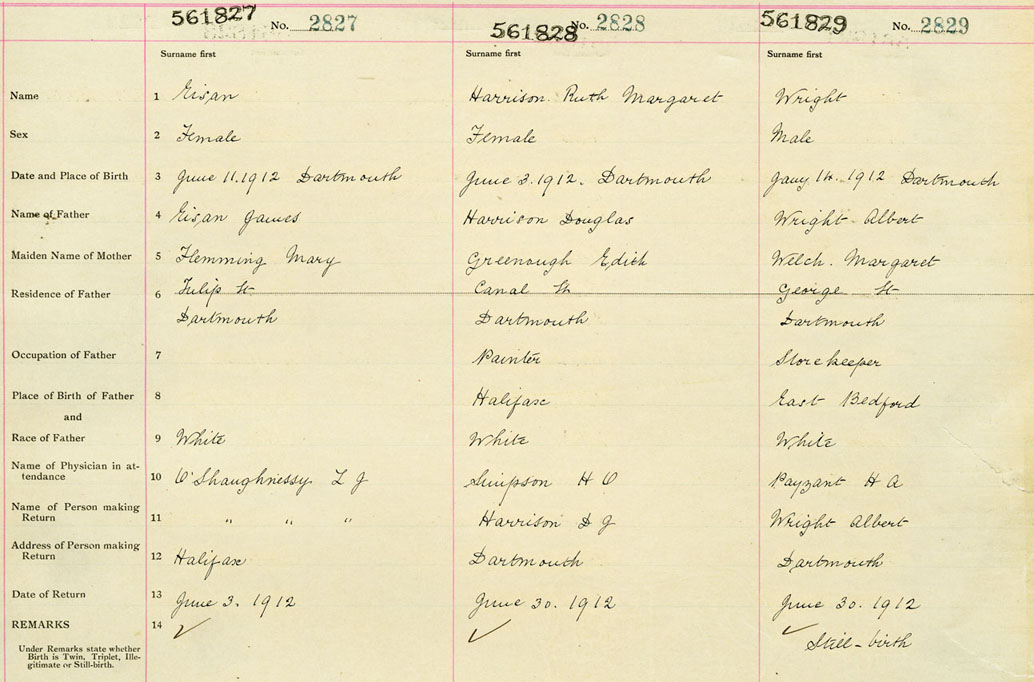 561827 No. 2827 561828 No. 2828 561829 No. 2829
Surname first Surname first Surname first
Name 1 Eisan Harrison Ruth Margaret Wright
Sex 2 Female Female Male
Date and Place of Birth 3 June 11.1912 Dartmouth June 3.1912. Dartmouth Jany 14. 1912 Dartmouth
Name of Father 4 Eisan James Harrison Douglas Wright Albert
Maiden Name of Mother 5 Flemming Mary Greenough Edith Welch. Margaret
Residence of Father 6 Tulip St Canal St George St
Dartmouth Dartmouth Dartmouth
Occupation of Father 7 Painter Storekeeper
Place of Birth of Father 8 Halifax East Bedford
and
Race of Father 9 White White White
Name of Physician in at-
tendance 10 O'Shaughnessy L J Simpson H O Payzant H A
Name of Person making
Return 11 " " " Harrison D J Wright Albert
Address of Person making
Return 12 Halifax Dartmouth Dartmouth
Date of Return 13 June 3. 1912 June 30. 1912 June 30. 1912
REMARKS 14 ✓ ✓ ✓ Still-birth
Under Remarks state whether
Birth is Twin, Triplet, Ille-
gitimate or Still-birth.